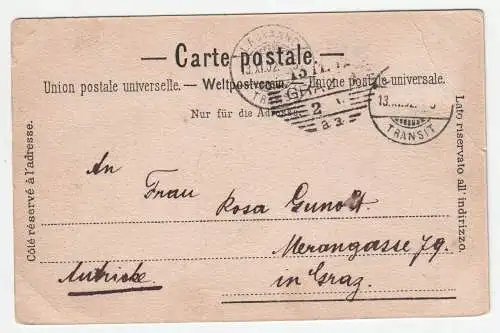 Carte postale.
Union postale universelle. — Weltpostverein. — Unione postale universale.
Nur für die Adresse.
Côté réservé à l'adresse.
Lato riservato all' indirizzo.
LAUSANNE
13.XI.02.
TRANSIT
GRAZ
2
a.3.
13.XI.02.
TRANSIT
An
Frau Rosa
Merangasse 79.
Autriche in Graz.